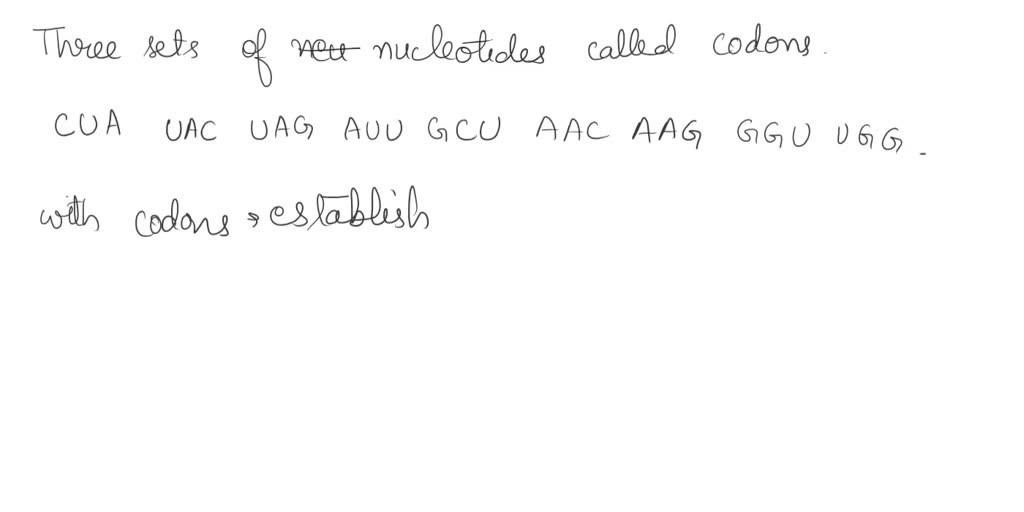 Three sets of nucleotides called codons.
CUA UAC UAG AUU GCU AAC AAG GGU UGG.
with codons → establish